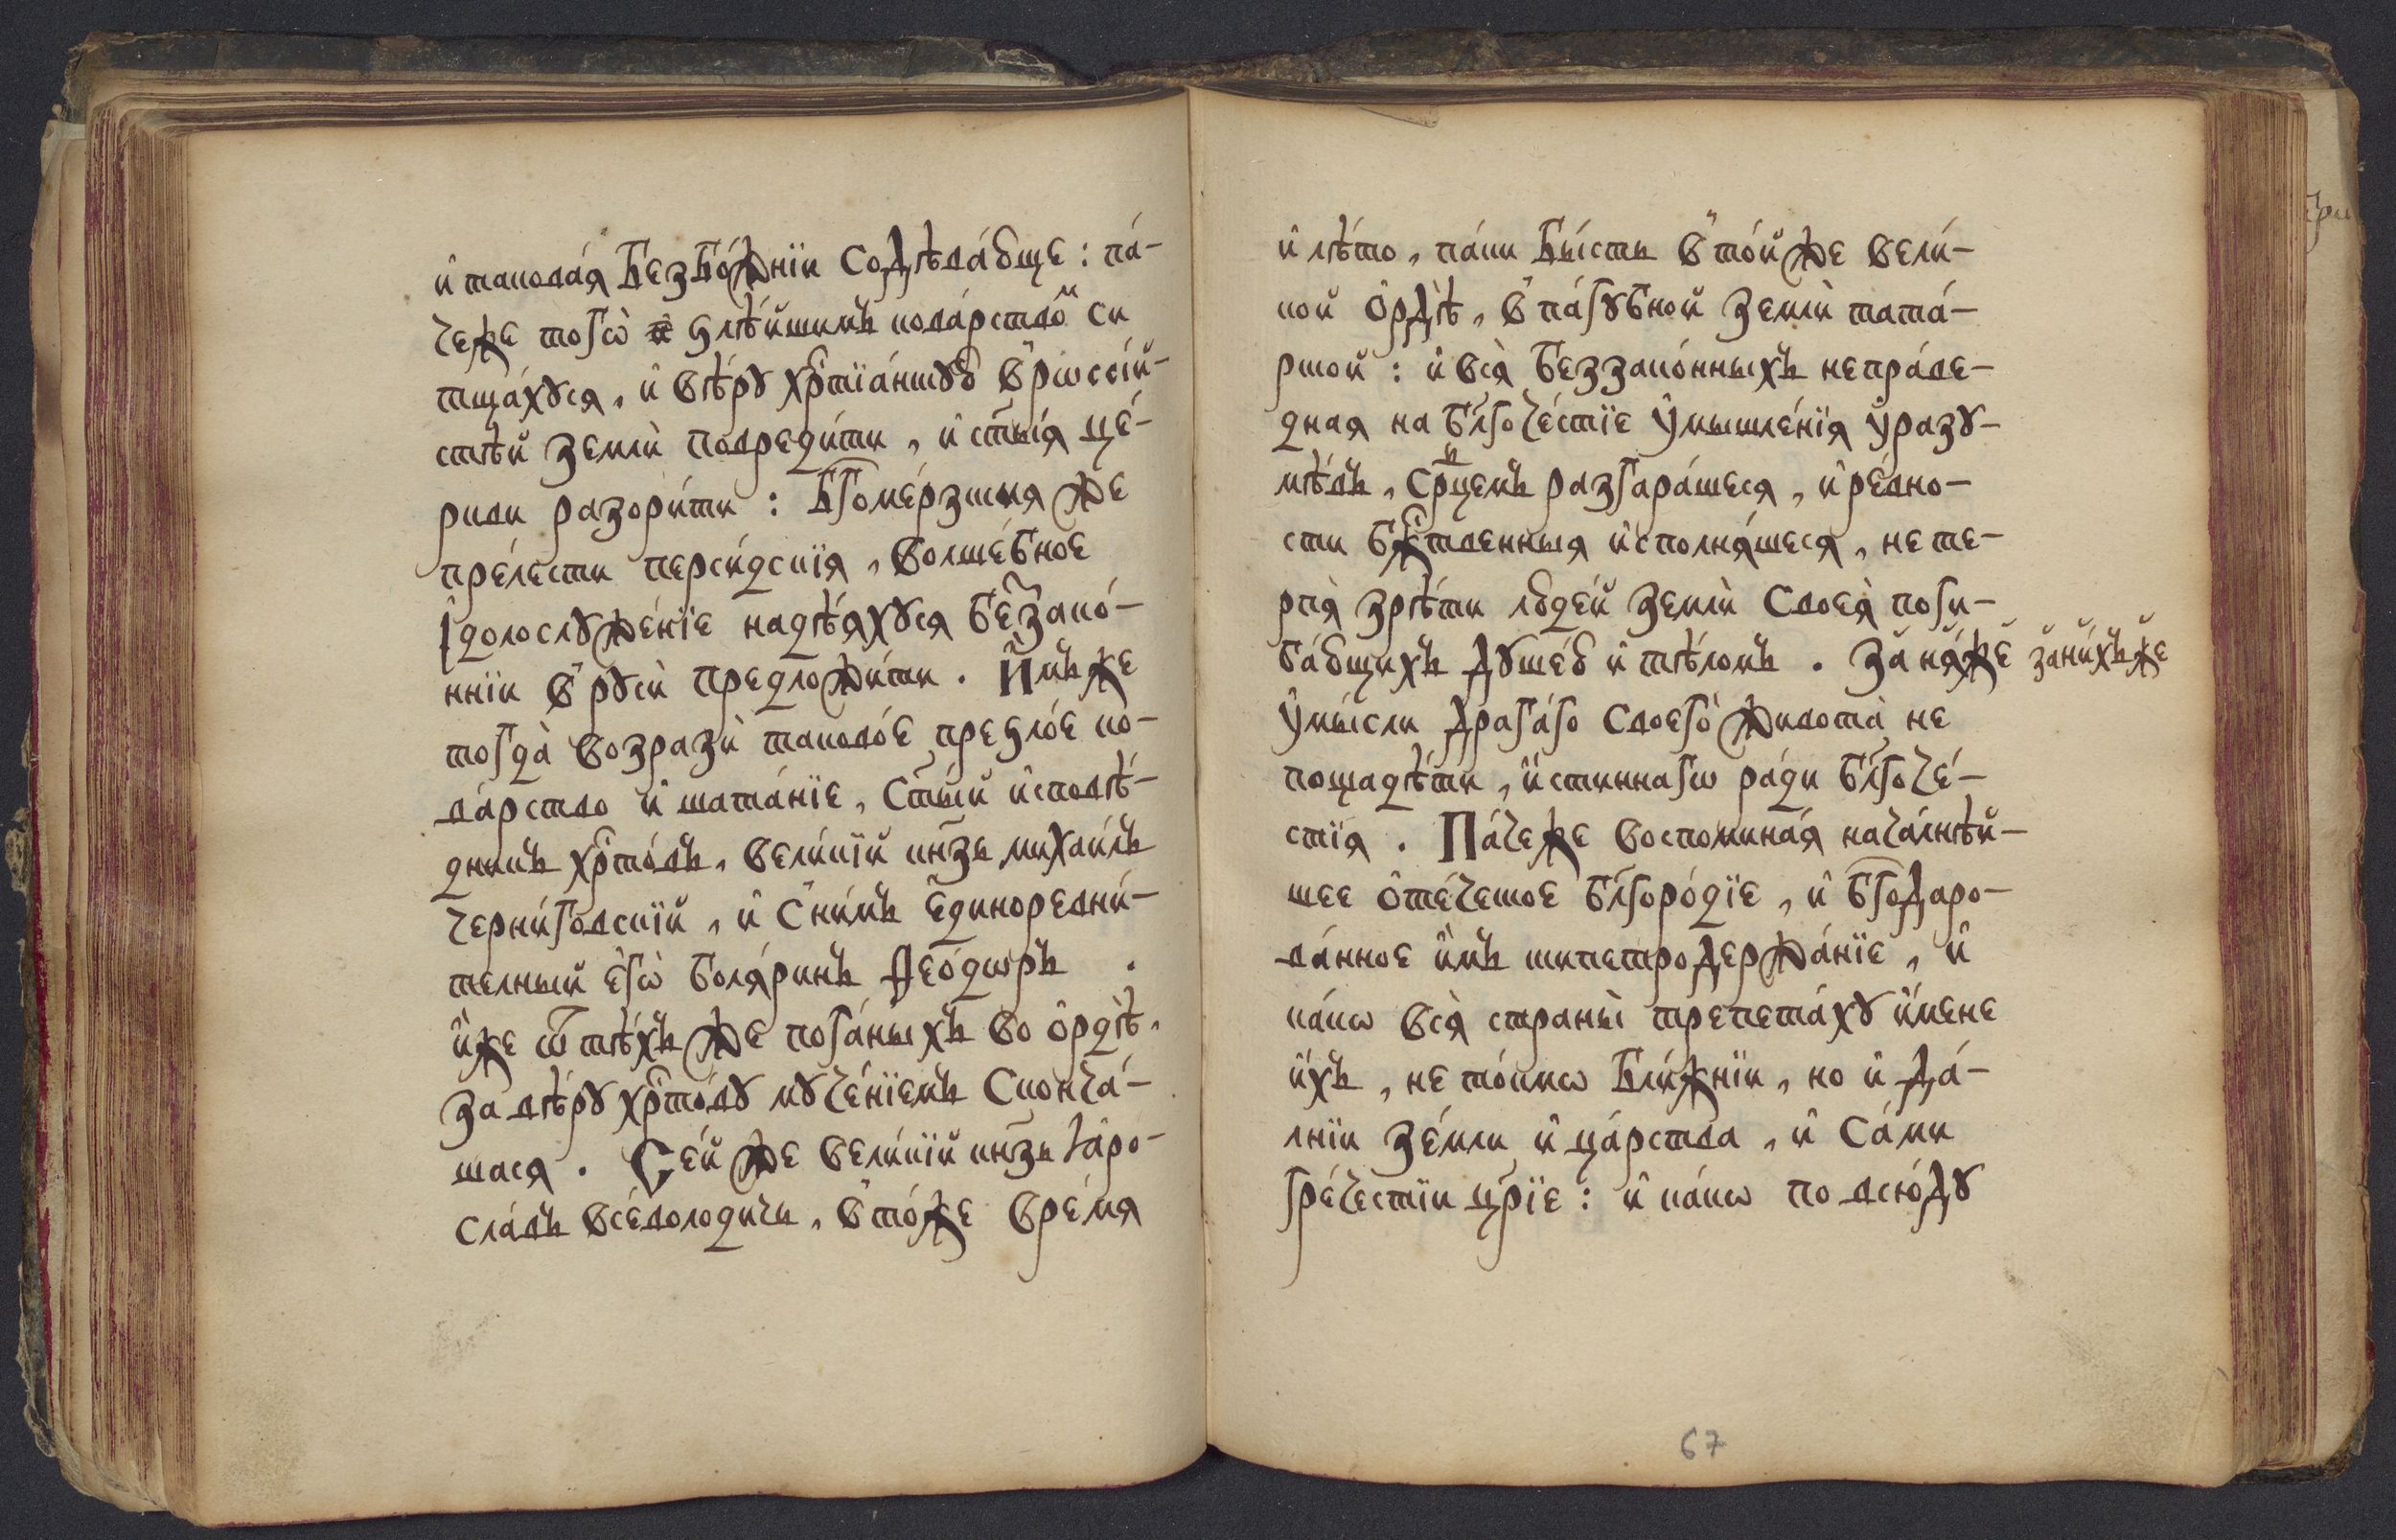 и҆ такова́я безбо́жнїи содѣва́юще : па́-
че же того̀ и҆ ѕлѣ́йшимъ кова́рствоⷨ си
тща́хꙋся, и҆ вѣ́рꙋ хрⷭ҇тїа́нскꙋю в̾ рѡссі́й-
стѣй землѝ повреди́ти, и҆ ст҃ы́я це́-
ркви разори́ти : бг҃оме́рзкия же
пре́лести перси́дскїя, волше́бное
і҆долослꙋже́нїе надѣ́яхꙋся беззако́-
ннїи в̾ рꙋсѝ предложи́ти . И҆́мъ же
тогда̀ возразѝ таково́е преѕло́е ко-
ва́рство и҆ шата́нїе, ст҃ы́й и҆сповѣ́-
дникъ хрⷭ҇то́въ, вели́кїй кн҃зь михаи́лъ
черни́говскїй, и҆ с̾ ни́мъ є҆диноревни́-
телный є҆гѡ̀ боля́ринъ ѳео́дѡръ .
и҆́же ѿ тѣ́хъ же пога́ныхъ во о҆рдѣ̀,
за вѣ́рꙋ хрⷭ҇то́вꙋ мꙋче́нїемъ сконча́-
шася . Се́й же вели́кїй кн҃зь ꙗ҆ро-
сла́въ все́володичь, в̾ то́же вре́мя
и҆ лѣ́то, па́ки бы́сть в̾ то́й же вели́-
кой о҆рдѣ̀, в̾ па́гꙋбной землѝ тата́-
рской : и҆ вся̀ беззако́нныхъ непра́ве-
дная на бл҃гоче́стїе ᲂу҆мышле́нїя ᲂу҆разꙋ-
мѣ́въ, срⷣцемъ разгара́шеся, и҆ ре́вно-
сти бжⷭ҇твенныя и҆сполня́шеся, не те-
рпя̀ зрѣ́ти люде́й землѝ своея̀ поги-
ба́ющихъ дꙋше́ю и҆ тѣ́ломъ . За ня́же за ни́хъ же
ᲂу҆мы́сли драга́го своегѡ̀ живота̀ не
пощадѣ́ти, и҆́стиннагѡ ра́ди бл҃гоче́-
стїя . Па́че же воспомина́я нача́лнѣй-
шее ѻ҆те́ческое бл҃горо́дїе, и҆ бг҃одаро-
ва́нное и҆̀мъ скипетродержа́нїе, и҆
ка́кѡ вся̀ страны̀ трепета́хꙋ и҆́мене
и҆́хъ, не то́кмѡ бли́жнїи, но и҆ да́-
лнїи зе́мли и҆ ца́рства, и҆ са́ми
гре́честїи цр҃їе : и҆ ка́кѡ по всю́дꙋ
67